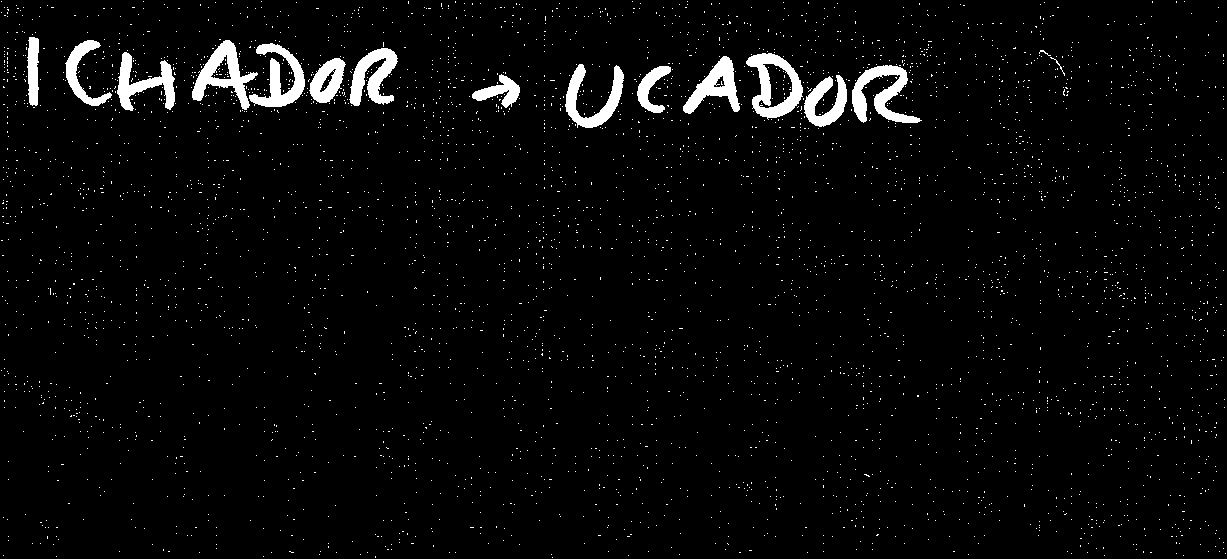 ICHADOR → UCADOR